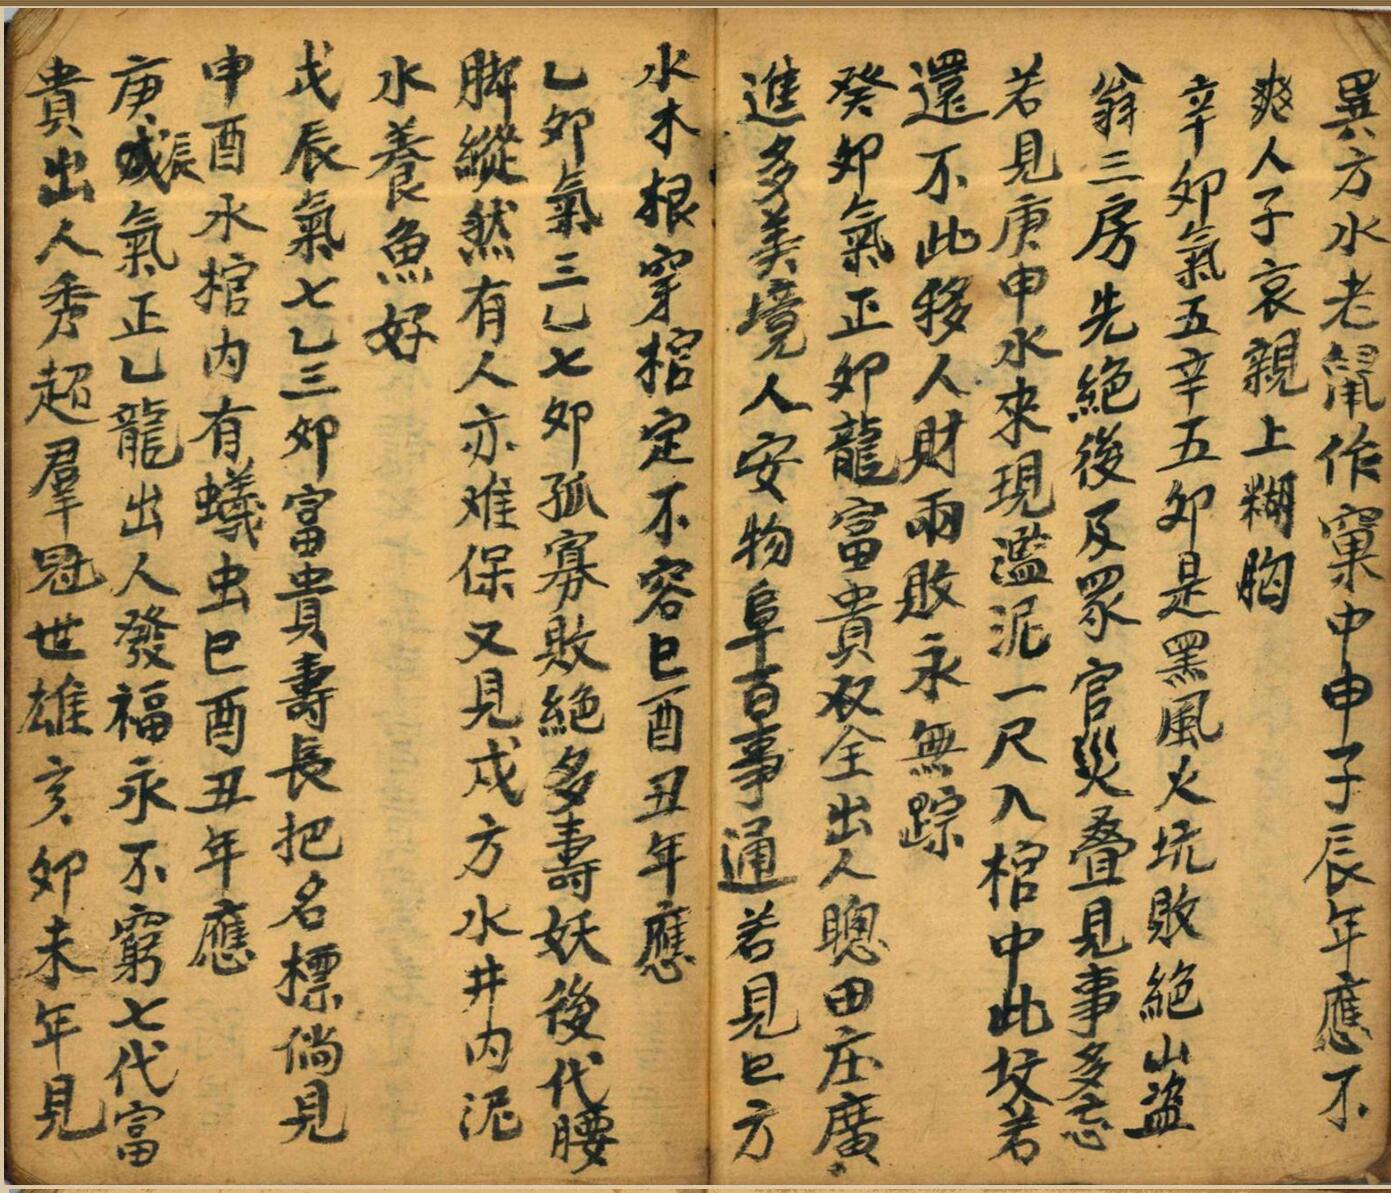 巽方水老鼠作窠中申子辰年應不
爽人子哀親上糊胸
辛卯氣五辛五卯是黑風火坑敗絕山盜
翁三房先絕後及眾官災叠見事多忘
若見庚申水來現濫泥一尺入棺中此坟若
還不此移人財兩敗永無踪
癸卯氣正卯龍富貴双全出人聰田庄廣
進多美境人安物阜百事通若見巳方
水木根穿棺定不容巳酉丑年應
乙卯氣三乙七卯孤寡敗絕多壽妖後代腰
脚縱然有人亦难保又見戍方水井内泥
水養魚好
戊辰氣七乙三卯富貴壽長把名標倘見
申酉水棺内有蟻虫巳酉丑年應
庚辰氣正乙龍出人發福永不窮七代富
貴出人秀超羣冠世雄亥卯未年見